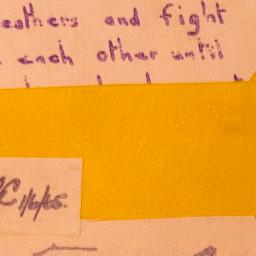 eathers and fight
each other until
C 1/6/65.